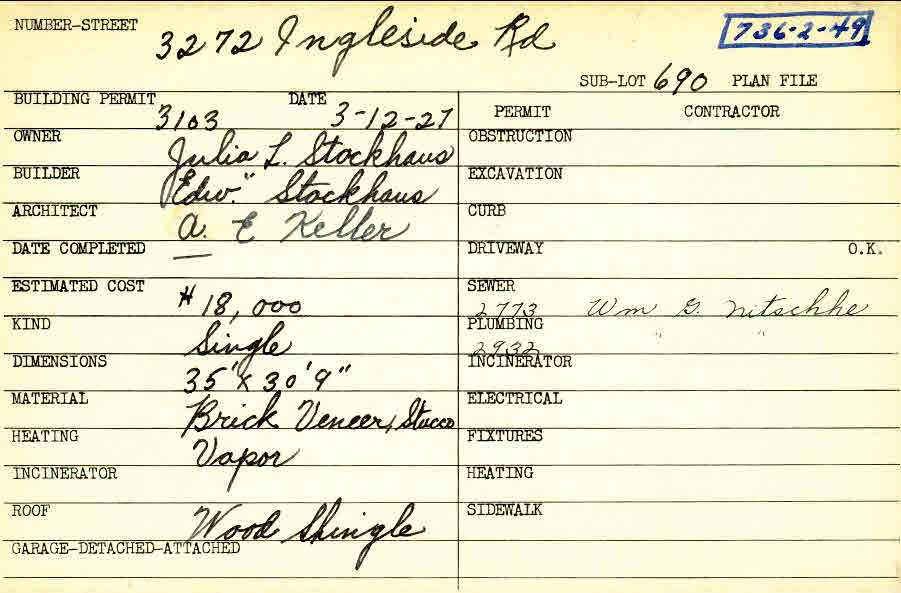 NUMBER-STREET 3272 Ingleside Rd 736-2-49
SUB-LOT 690 PLAN FILE
BUILDING PERMIT 3103 DATE 3-12-27
PERMIT CONTRACTOR
OWNER Julia L. Stockhaus
OBSTRUCTION
BUILDER Edw. " Stockhaus
EXCAVATION
ARCHITECT A. E Keller
CURB
DATE COMPLETED —
DRIVEWAY O.K.
ESTIMATED COST # 18,000
SEWER 2773 Wm G. Nitschke
KIND Single
PLUMBING 2932 " "
DIMENSIONS 35' x 30'9"
INCINERATOR
MATERIAL Brick Veneer, Stucco
ELECTRICAL
HEATING Vapor
FIXTURES
INCINERATOR
HEATING
ROOF Wood Shingle
SIDEWALK
GARAGE-DETACHED-ATTACHED